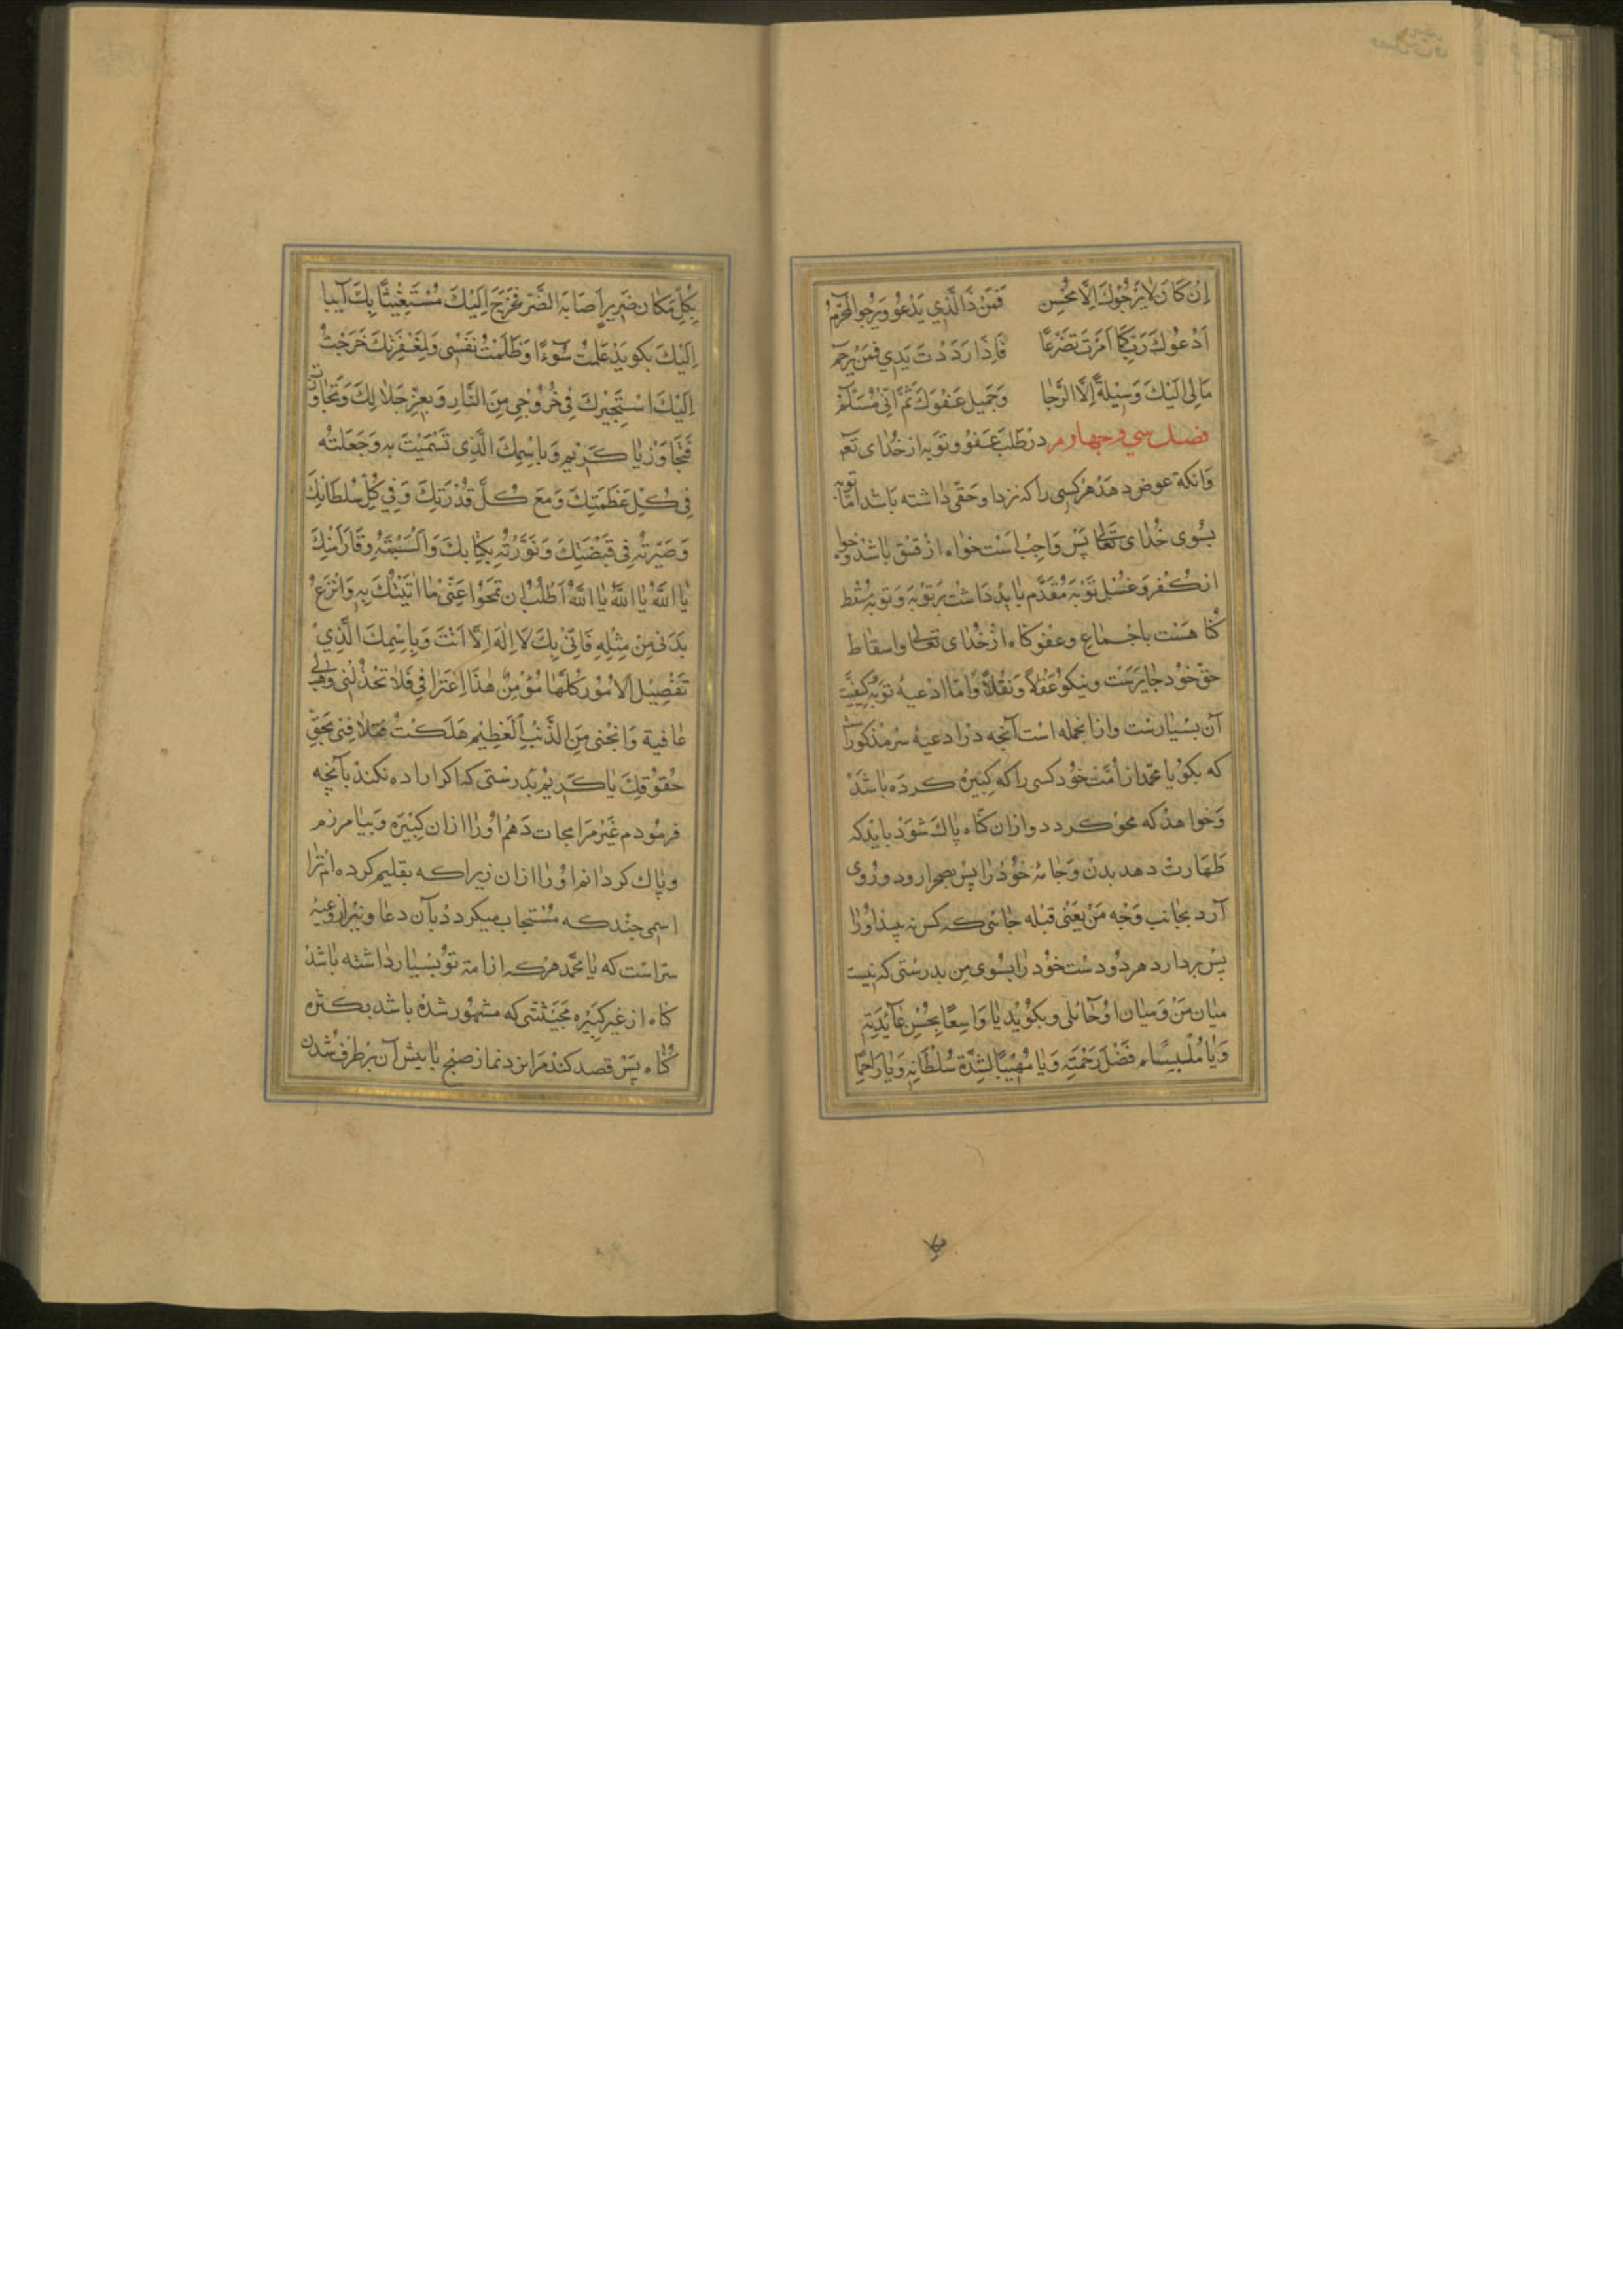 اِنْ كَانَ لَا يَرْجُوكَ اِلَّا مُحْسِن فَمَنْ ذَا الَّذِي يَدْعُو وَيَرْجُو الْمُجْرِمُ
اَدْعُوكَ رَبِّ كَمَا اَمَرْتَ تَضَرُّعًا فَاِذَا رَدَدْتَ يَدِي فَمَنْ يَرْحَمُ
مَالِي اِلَيْكَ وَسِيْلَةٌ اِلَّا الرَّجَا وَجَمِيل عَفْوِكَ ثُمَّ اَنِّي مُسْلِمُ
فصل سي و چهارم در طلب عفو و توبه از خداى تعا
وانكه عوض دهد هر كسى را كه نزد او حقى داشته باشد اما توبه
بسوى خداى تعالى پس واجب است خواه از فسق باشد و خواه
از كفر و غسل توبه مقدم بايد داشت بر توبه و توبه مسقط
كناهست باجماع و عفو كناه از خداى تعالى و اسقاط
حق خود جايزست و نيكو عقلا و نقلا و اما ادعيهٔ توبه و كيفيت
آن بسيارست و ازانجمله است آنچه در ادعيهٔ سر مذكورست
كه بكو يا محمد از امت خود كسى را كه كبيره كرده باشد
و خواهد كه محو كردد و ازان كناه پاك شود بايد كه
طهارت دهد بدن و جامهٔ خود را پس بصحرا رود و روى
آرد بجانب وجه من يعنى قبله جائى كه كس نه بيند او را
پس بردارد هر دو دست خود را بسوى من بدرستى كه نيست
ميان من و ميان او حائلى و بكويد يا وَاسِعًا بِحُسْنِ عَآئِدَتِهِ
وَيَا مُلْبِسًا فَضْلَ رَحْمَتِهِ وَيَا مُهِيْبًا لِشِدَّةِ سُلْطَانِهِ وَيَا رَاحِمًا
بِكُلِّ مَكَانٍ ضَرِيرًا اَصَابَهُ الضُّرُّ فَخَرَجَ اِلَيْكَ مُسْتَغِيْثًا بِكَ آيبا
اِلَيْكَ بكويد عَمِلْتُ سُوْءًا وَظَلَمْتُ نَفْسِى وَلِمَغْفِرَتِكَ خَرَجْتُ
اِلَيْكَ اَسْتَجِيْرُكَ فِى خُرُوْجِى مِنَ النَّارِ وَبِعِزِّ جَلَالِكَ وَتَجَاوَزْتَ
فَتَجَاوَزْ يَا كَرِيْم وَبِاسْمِكَ الَّذِى تَسَمَّيْتَ بِهِ وَجَعَلْتَهُ
فِى كُلِّ عَظَمَتِكَ وَمَعَ كُلِّ قُدْرَتِكَ وَفِى كُلِّ سُلْطَانِكَ
وَصَيَّرْتَهُ فِى قَبْضَتِكَ وَنَوَّرْتَهُ بِكِتَابِكَ وَاَلْبَسْتَهُ وَقَارًا مِنْكَ
يَا اَللّٰهُ يَا اَللّٰهُ يَا اَللّٰهُ اَطْلُبُ اَنْ تَمْحُوَ عَنِّى مَا اَتَيْتُكَ بِهِ وَانْزَعْ
بَدَنِى مِنْ مِثْلِهِ فَاِنِّى بِكَ لَا اِلٰهَ اِلَّا اَنْتَ وَبِاسْمِكَ الَّذِى
تَفْصِيْلُ الْاُمُوْرِ كُلِّهَا مُؤْمِنٌ هٰذَا اِعْتِرَافِى فَلَا تَخْذُلْنِى وَهَبْ لِى
عَافِيَة وَانْجِنِى مِنَ الذَّنْبِ الْعَظِيْمِ هَلَكْتُ فَتَلَافِنِى بِحَقِّ
حُقُوْقِكَ يَا كَرِيْمُ بدرستى كه اكر اراده نكند بآنچه
فرمودم غير مرا نجات دهم او را ازان كبيره و بيامرزم
و پاك كردانم او را ازان زيرا كه بتعليم كرده‌ام ترا
اسمى چند كه مستجاب ميكردد بآن دعا و نيز از ادعيهٔ
سراست كه يا محمد هر كه از امة تو بسيار داشته باشد
كناه از غير كبيره بحيثتى كه مشهور شده باشد بكثرة
كناه پس قصد كند مرا نزد نماز صبح يا پيش آن بر طرف شدن